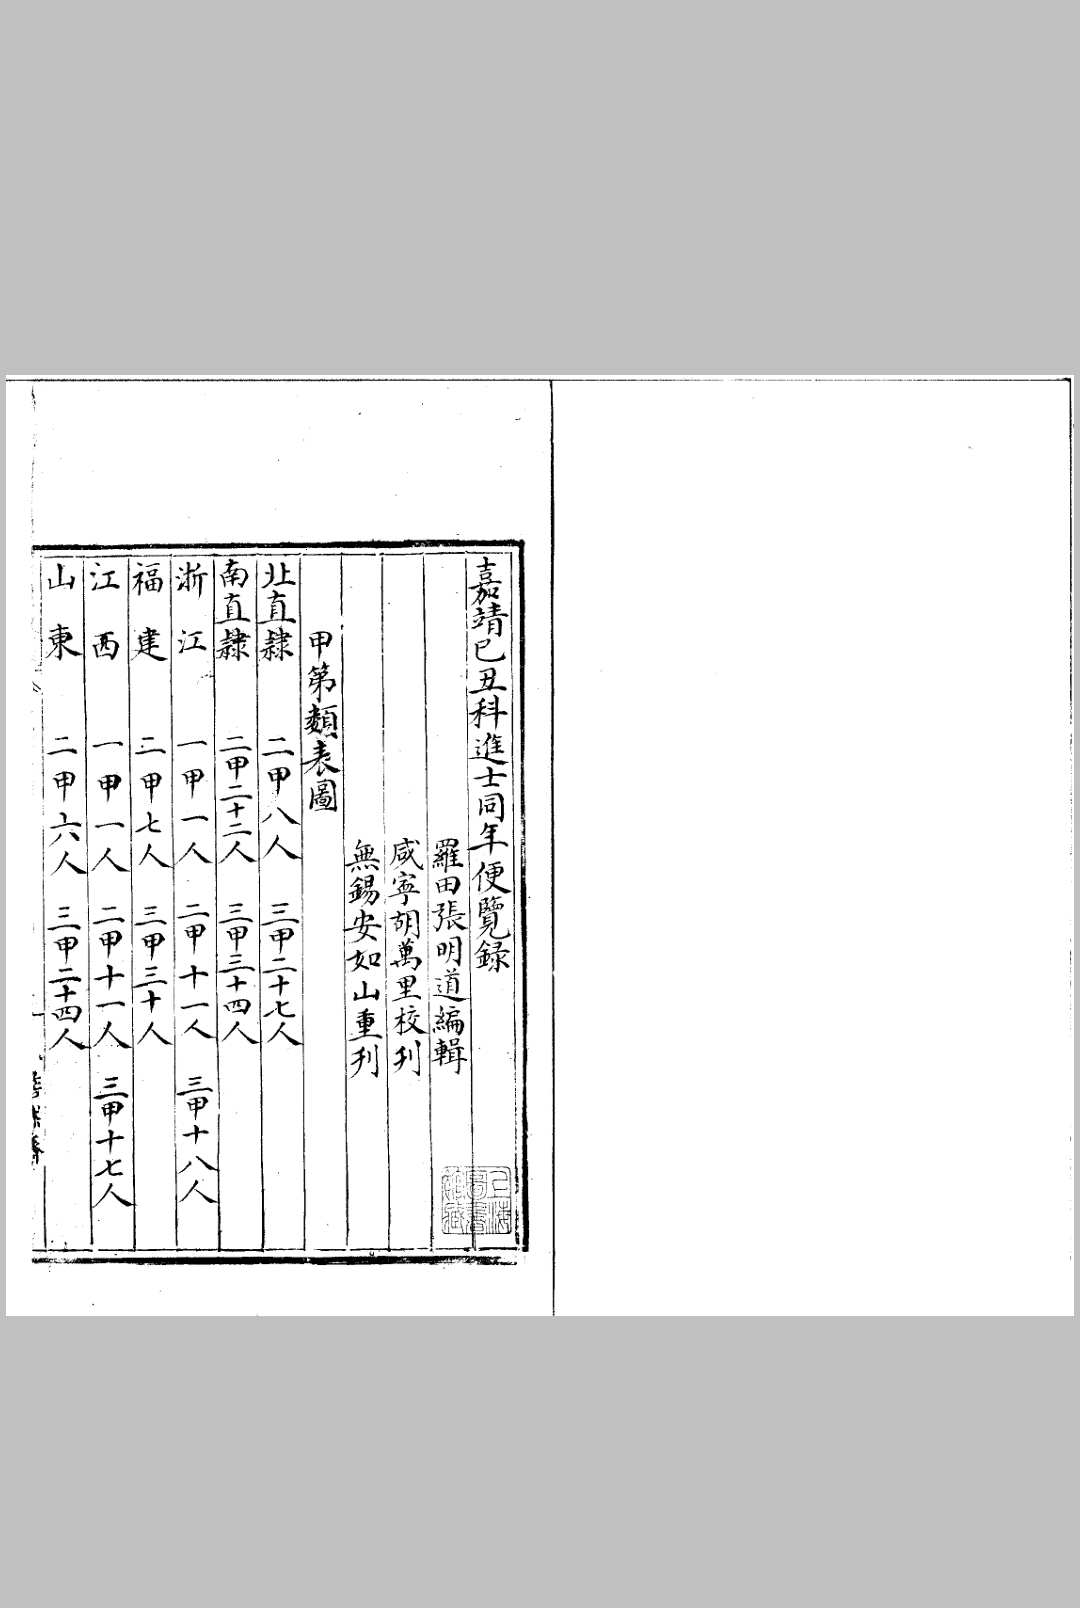 嘉靖己丑科進士同年便覽録
羅田張明道編輯
咸寧胡萬里校刋
無錫安如山重刋
甲第類表圖
北直隸 二甲八人 三甲二十七人
南直隸 二甲二十二人 三甲三十四人
浙江 一甲一人 二甲十一人 三甲十八人
福建 二甲七人 三甲三十人
江西 一甲一人 二甲十一人 三甲十七人
山東 二甲六人 三甲二十四人
上海圖書館藏